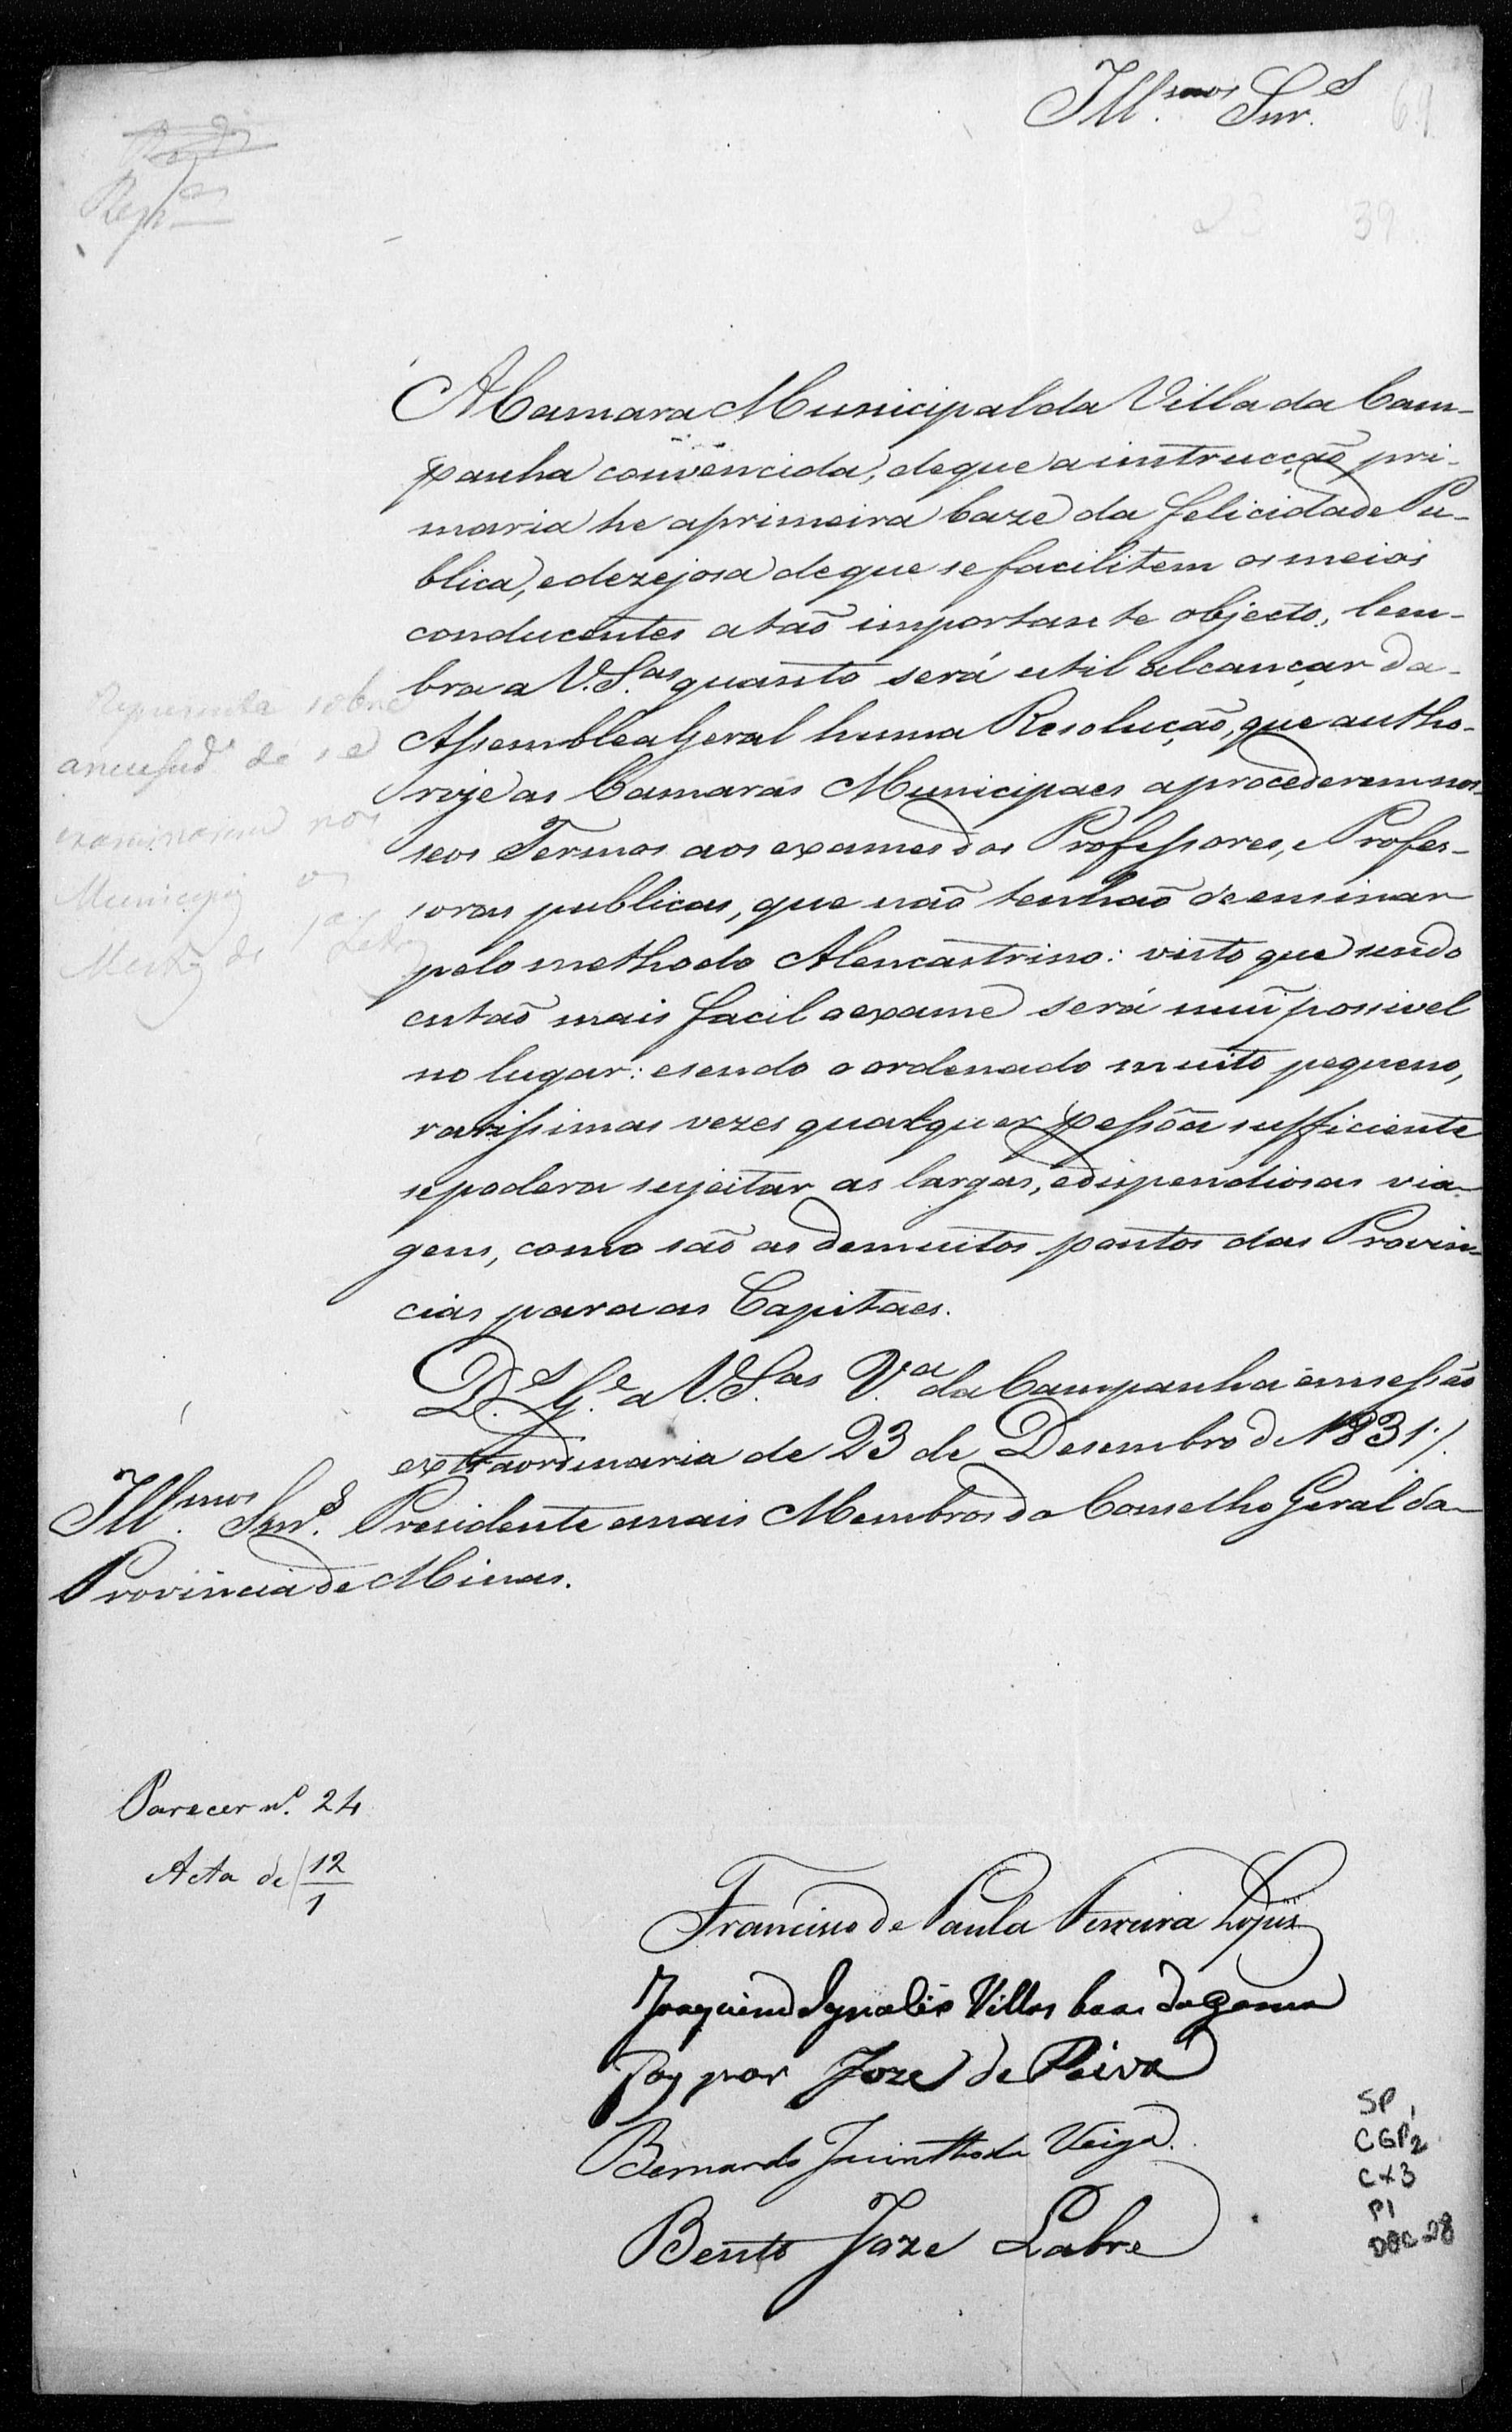 Ill.mos Snr.s
69
39
Rep.am
A Camara Municipal da Villa da Cam-
panha convencida, de que a instrucção pri-
maria he a primeira baze da felicidade Pu-
blica, e dezejosa de que se facilitem os meios
conducentes a tão importante objecto, lem-
bra a V.S.as quanto será util alcançar da
Assemblea Geral huma Resolução, que autho-
rize as Camaras Municipaes a procederem nos
seos Termos aos exames dos Professores, e Profes-
soras publicas, que não tenhão de ensinar
pelo methodo Alencastrino: visto que sendo
então mais facil o exame será mui possivel
no lugar: e sendo o ordenado muito pequeno,
rarissimas vezes qualquer pessôa sufficiente
se podera sujeitar as largas, e dispendiosas via-
gens, como são as de muitos pontos das Provin-
cias para as Capitaes.
D.s G.e a V.S.as V.a da Campanha em sessão
extraordinaria de 23 de Desembro de 1831./.
Ill.mos Snr.s Presidente e mais Membros do Conselho Geral da
Provincia de Minas.
Representa sobre
a necessid.e de se
examinarem nos
Municipios os
Mestres de 1.as Letras
Parecer n.o 24
Acta de 12/1
Francisco de Paula Ferreira Lopes
Joaquim Ignacio Villas boas da Gama
Jozé de Paiva
Bernardo Jacintho da Veiga.
Bento Joze Labre
SP 1
CGP2
CX3
P1
DOC 28